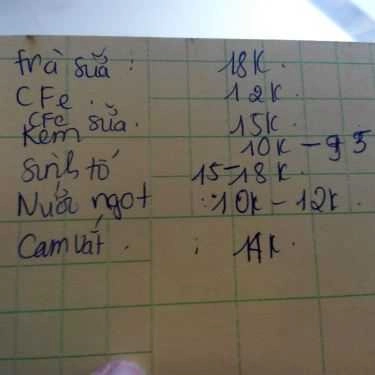 trà sữa : 18K.
CFe. 12K.
CFe sữa. 15K
Kem 10K - 95
Sinh tố 15-18K.
Nước ngọt : 10K - 12K.
Cam vắt. : 14K.